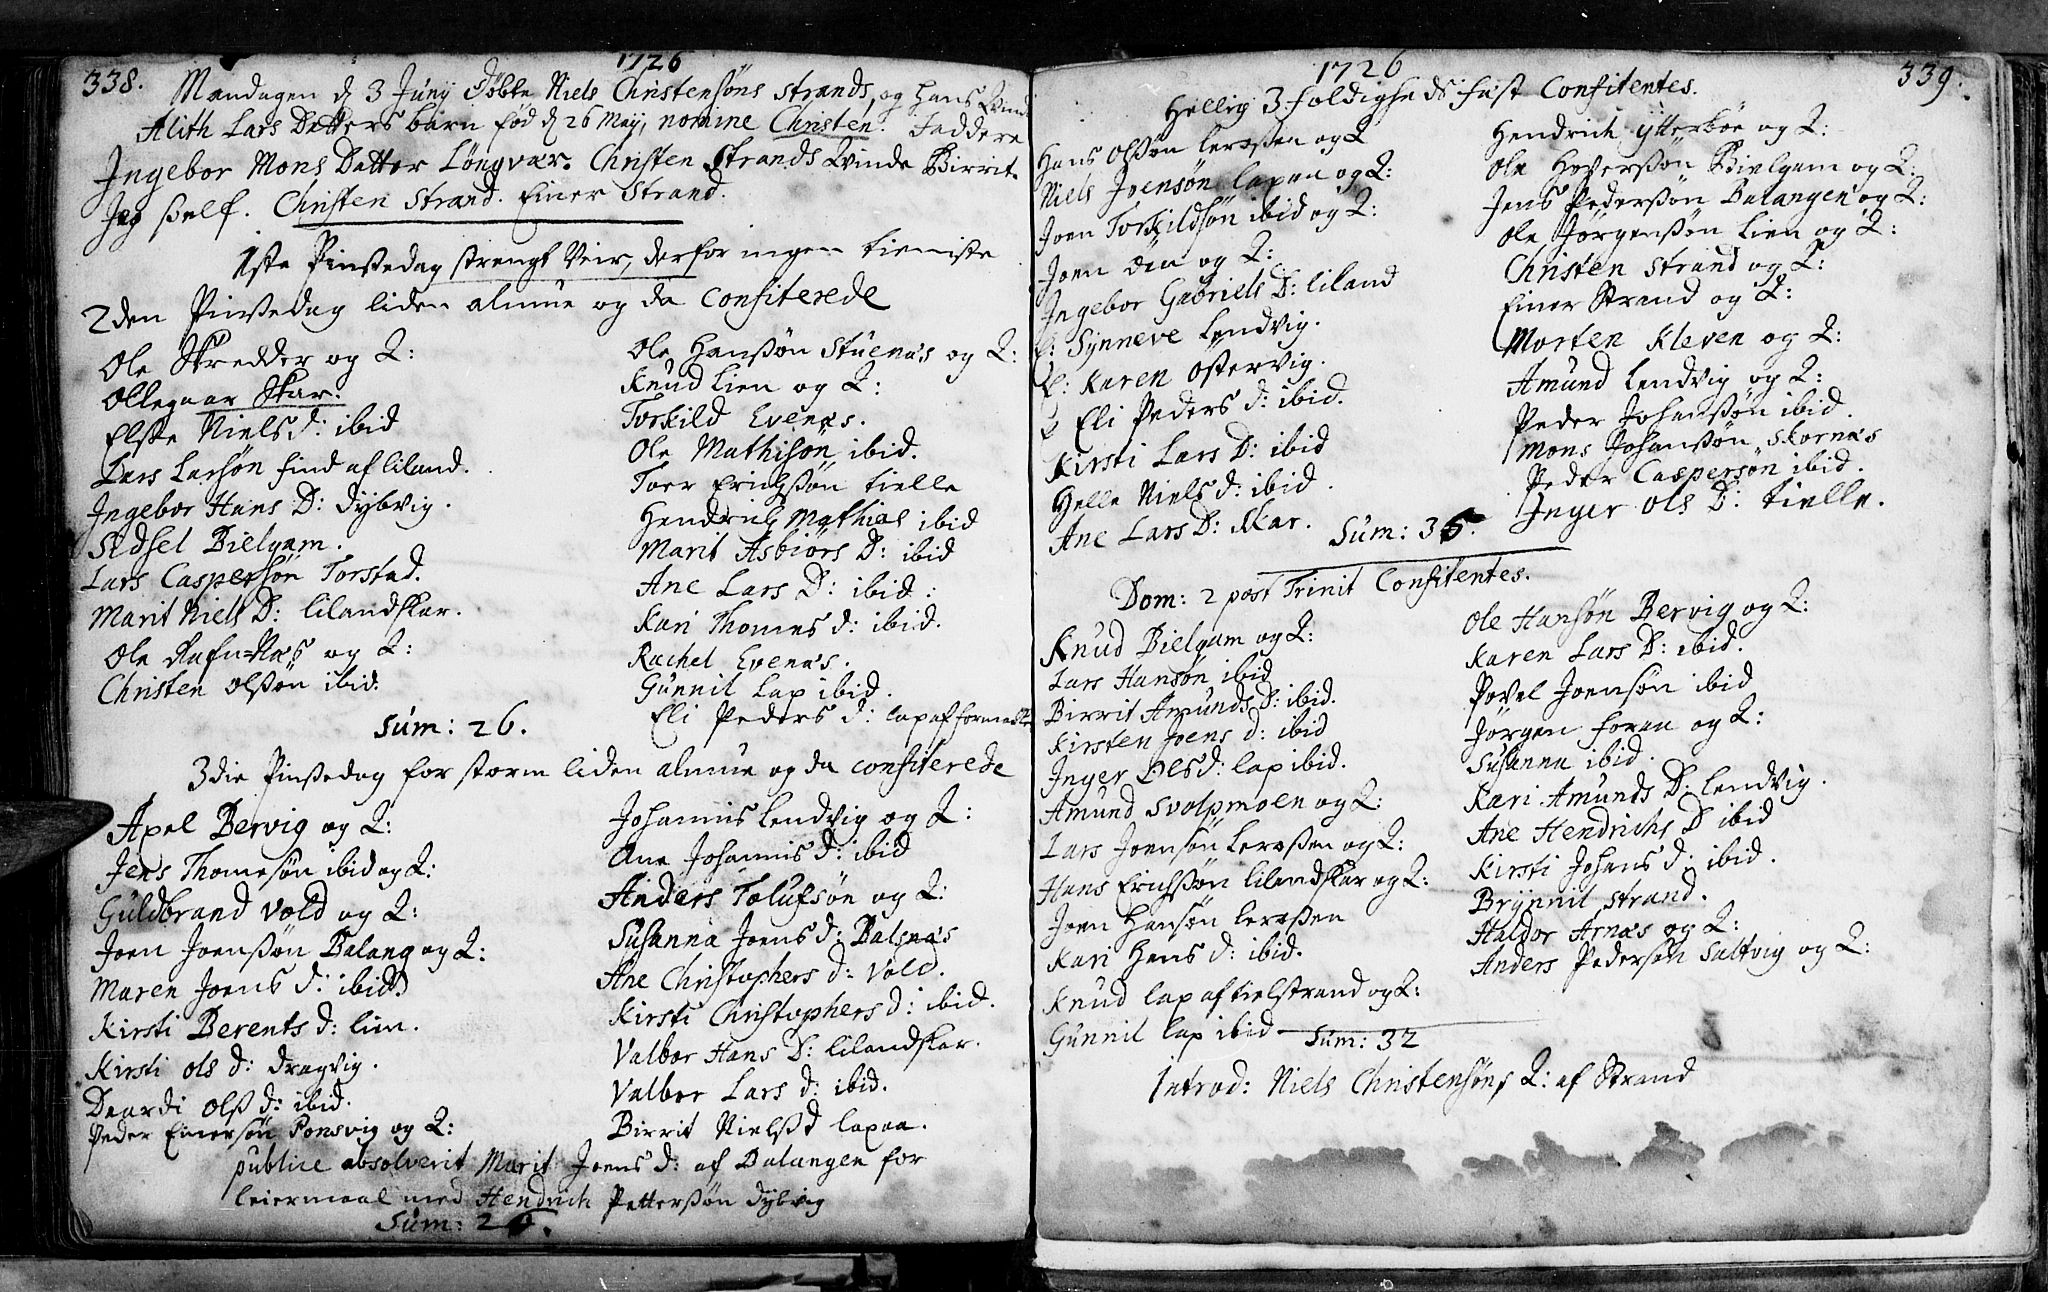 338.
1726
Mandagen d 3 Junij døbte Niels Christensøns Strands, og Hans
Alith Lars Datters barn fød d 26 Maij, nomine Christen. Faddere
Ingebor Mons Datter Løngvær. Christen Strands Qvinde Birrit.
Jeg self. Christen Strand. Einer Strand.
1ste Pinssedag strengt Veir, derfor ingen tieniste
2den Pinssedag liden almue og da Confiterede
Ole Skredder og Q:
Ollegaar Skar.
Elsse Niels d: ibid
Lars Larsøn find af liland.
Ingebor Hans D: dybvig.
Sidsel Bielgam.
Lars Caspersøn Torstad.
Marit Niels D: lilandskar.
Ole Rafn-Næs og Q:
Christen olssøn ibid.
Ole Hanssøn Stuenæs og Q:
Knud Lien og Q:
Torkild Evenæs.
Ole Mathisøn ibid.
Toer Erichssøn tielle
Hendrich Mathias ibid
Marit Asbiørs D: ibid
Ane Lars D: ibid:
Kari Thomes d: ibid.
Rachel Evenæs.
Gunnil Lap ibid.
Eli Peders d: lap af
Sum: 26.
3die Pinssedag for storm liden almue og da confiterede
Axel Bervig og Q:
Jens Thomesøn ibid og Q:
Guldbrand Vold og Q:
Joen Joenssøn Balang og Q:
Maren Joens d: ibid
Kirsti Berents d: lien.
Kirsti Ols d: dragvig.
Deardi Olss d: ibid.
Peder Einersøn Ponsvig og Q:
Johannis Lendvig og Q:
Ane Johannis d: ibid
Anders Tolufsøn og Q:
Susanna Joens d: Balsnæs
Ane Christophers d: Vold.
Kirsti Christophers d: ibid.
Valbor Hans D: lilandskar.
Valbor Lars d: ibid.
Birrit Nielss d lapaa.
publice absolverit Marit Joens d: af Balangen for
leiermaal med Hendrich Petterssøn dybvig
Sum:
1726
339.
Hellig 3foldigheds fest Confitentes.
Hans Olssøn lerossen og Q
Niels Joensøn lapaa og Q:
Joen Torkildsøn ibid og Q:
Joen Øen og Q:
Ingebor Gabriels D: liland
Synneve Lendvig.
Karen Østervig.
Eli Peders d: ibid.
Kirsti Lars D: ibid
Helle Niels d: ibid.
Ane Lars D: Skar.
Hendrich Ytterbøe og Q:
Ole Hoffverssøn Bielgam og Q:
Jens Pederssøn Balangen og Q:
Ole Jørgenssøn lien og Q:
Christen Strand og Q:
Einer Strand og Q:
Morten Kleven og Q:
Amund Lendvig og Q:
Peder Johanssøn ibid.
Mons Johanssøn Skornæs
Peder Caspersøn ibid.
Inger Ols D: tielle.
Sum: 35.
Dom: 2 post Trinit Confitentes.
Knud Bielgam og Q:
Lars Hansøn ibid
Birrit Amunds D: ibid.
Kirsten Joens d: ibid
Inger Ols d: lap ibid.
Amund Svolpmoen og Q:
Lars Joensøn Lerossen og Q:
Hans Erichssøn lilandskar og Q:
Joen Hansøn lerossen
Kari Hans d: ibid.
Knud lap af tielstrand og Q:
Gunnil lap ibid
Ole Hansøn Bervig og Q:
Karen Lars D: ibid.
Povel Joensøn ibid
Jørgen foraa og Q:
Susanna ibid.
Kari Amunds D: Lendvig.
Ane Hendrichs D ibid
Kirsti Johans d: ibid.
Brynnil Strand.
Haldor Arnæs og Q:
Anders Pedersøn Saltvig og Q:
Sum: 32
Introd: Niels Christensøns Q: af Strand